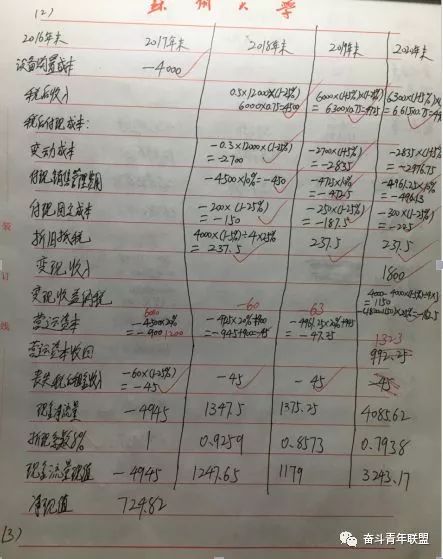 苏州大学
(2)
2016年末 2017年末 2018年末 2019年末 2020年末
设备购置成本 -4000
税后收入 0.5×12000×(1-25%) 6000×(1+5%)×(1-25%) 6300×(1+5%)×(1-25%)
6000×0.75=4500 =6300×0.75=4725 =6615×0.75=
税后付现成本:
变动成本 -0.3×12000×(1-25%) -2700×(1+5%) -2835×(1+5%)
=-2700 =-2835 =-2976.75
付现销售管理费用 -4500×10%=-450 -4725×10% -4961.25×10%
=-472.5 =-496.13
付现固定成本 -200×(1-25%) -250×(1-25%) -300×(1-25%)
=-150 =-187.5 =-225
折旧抵税 4000×(1-5%)÷4×25% 237.5 237.5
=237.5
变现收入 1800
4000-4000×(1-5%)÷4×3
变现收益纳税 =1150
-(1800-1150)×25%=-162.5
600 -60 -63
营运资本 -4500×20% -4725×20%+900 -4961.25×20%+945
=-900 1200 =-945+900=-45 =-47.25
1323
营运资本收回 992.25
丧失税后租金收入 -60×(1-25%) -45 -45 -45
=-45
现金净流量 -4945 1347.5 1375.25 4085.62
折现系数8% 1 0.9259 0.8573 0.7938
现金流量现值 -4945 1247.65 1179 3243.17
净现值 724.82
(3)
装
订
线
奋斗青年联盟